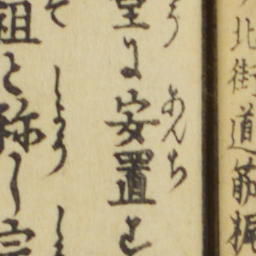 北街道筋
堂に安置す
あんち
祖と称し宗
しよう